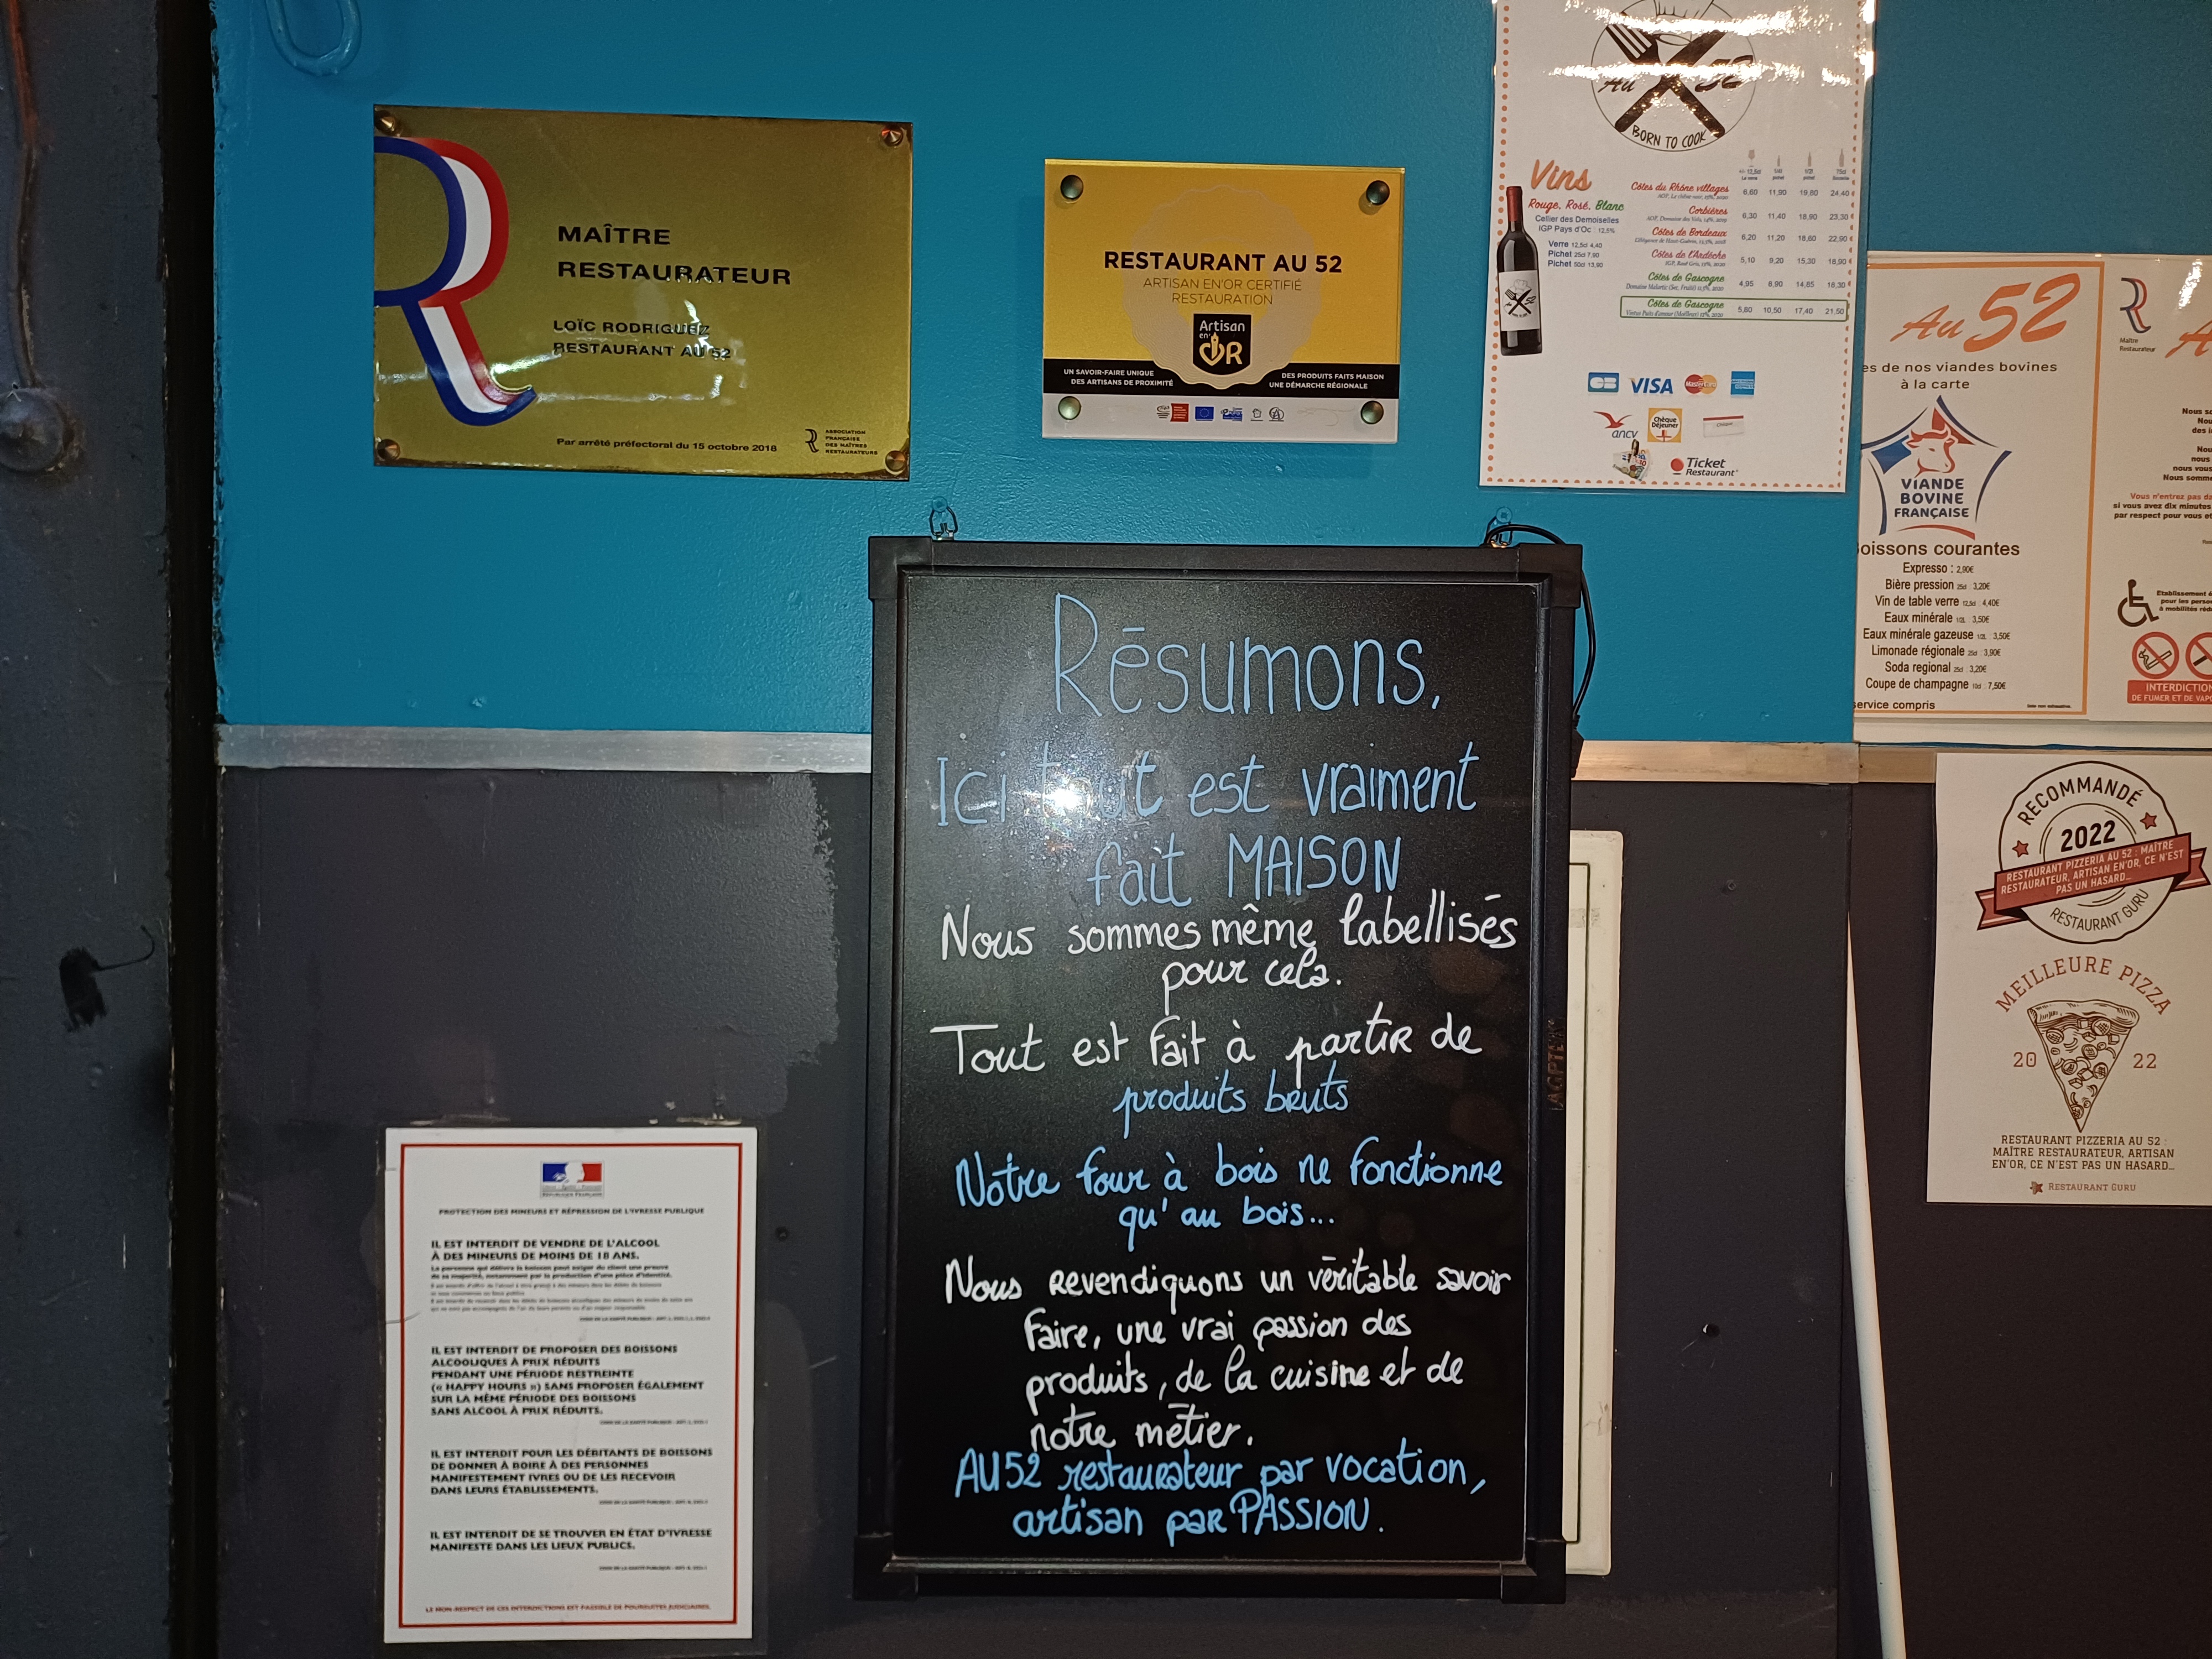 MAÎTRE
RESTAURATEUR
LOÏC RODRIGUEZ
RESTAURANT AU 52
Par arrêté préfectoral du 15 octobre 2018
ASSOCIATION
FRANÇAISE
DES MAÎTRES
RESTAURATEURS
RESTAURANT AU 52
ARTISAN EN'OR CERTIFIÉ
RESTAURATION
Artisan
en'
OR
UN SAVOIR-FAIRE UNIQUE
DES ARTISANS DE PROXIMITÉ
DES PRODUITS FAITS MAISON
UNE DÉMARCHE RÉGIONALE
Au 52
BORN TO COOK
Vins
Rouge, Rosé, Blanc
Cellier des Demoiselles
IGP Pays d'Oc : 12,5%
Verre 12,5cl 4,40
Pichet 25cl 7,90
Pichet 50cl 13,90
Côtes du Rhône villages 6,60 11,90 19,80 24,40 €
Corbières 6,30 11,40 18,90 23,30 €
Côtes de Bordeaux 6,20 11,20 18,60 22,90 €
Côtes de l'Ardèche 5,10 9,20 15,30 18,90 €
Côtes de Gascogne 4,95 8,90 14,85 18,30 €
Côtes de Gascogne 5,80 10,50 17,40 21,50
CB VISA MasterCard
ancv
Chèque
Déjeuner
Ticket
Restaurant
Au 52
es de nos viandes bovines
à la carte
VIANDE
BOVINE
FRANÇAISE
oissons courantes
Expresso : 2,90€
Bière pression 25cl : 3,20€
Vin de table verre 12,5cl : 4,40€
Eaux minérale 1/2L : 3,50€
Eaux minérale gazeuse 1/2L : 3,50€
Limonade régionale 25cl : 3,90€
Soda regional 25cl : 3,20€
Coupe de champagne 10cl : 7,50€
service compris
Maître
Restaurateur
A
Nous s
Nou
des i
Nou
nous
nous vous
Nous somme
Vous n'entrez pas da
si vous avez dix minutes
par respect pour vous et
Etablissement
pour les perso
à mobilités réd
INTERDICTION
DE FUMER ET DE VAP
Résumons,
Ici tout est vraiment
fait MAISON
Nous sommes même labellisés
pour cela.
Tout est fait à partir de
produits bruts
Notre four à bois ne fonctionne
qu'au bois...
Nous revendiquons un véritable savoir
faire, une vrai passion des
produits, de la cuisine et de
notre métier.
AU52 restaurateur par vocation,
artisan par PASSION.
RECOMMANDÉ
2022
RESTAURANT PIZZERIA AU 52 : MAÎTRE
RESTAURATEUR, ARTISAN EN'OR, CE N'EST
PAS UN HASARD...
RESTAURANT GURU
MEILLEURE PIZZA
20 22
RESTAURANT PIZZERIA AU 52 :
MAÎTRE RESTAURATEUR, ARTISAN
EN'OR, CE N'EST PAS UN HASARD...
RESTAURANT GURU
RÉPUBLIQUE FRANÇAISE
PROTECTION DES MINEURS ET RÉPRESSION DE L'IVRESSE PUBLIQUE
IL EST INTERDIT DE VENDRE DE L'ALCOOL
À DES MINEURS DE MOINS DE 18 ANS.
La personne qui délivre la boisson peut exiger du client une preuve
de sa majorité, notamment par la production d'une pièce d'identité.
IL EST INTERDIT DE PROPOSER DES BOISSONS
ALCOOLIQUES À PRIX RÉDUITS
PENDANT UNE PÉRIODE RESTREINTE
(« HAPPY HOURS ») SANS PROPOSER ÉGALEMENT
SUR LA MÊME PÉRIODE DES BOISSONS
SANS ALCOOL À PRIX RÉDUITS.
IL EST INTERDIT POUR LES DÉBITANTS DE BOISSONS
DE DONNER À BOIRE À DES PERSONNES
MANIFESTEMENT IVRES OU DE LES RECEVOIR
DANS LEURS ÉTABLISSEMENTS.
IL EST INTERDIT DE SE TROUVER EN ÉTAT D'IVRESSE
MANIFESTE DANS LES LIEUX PUBLICS.
LE NON-RESPECT DE CES INTERDICTIONS EST PASSIBLE DE POURSUITES JUDICIAIRES.